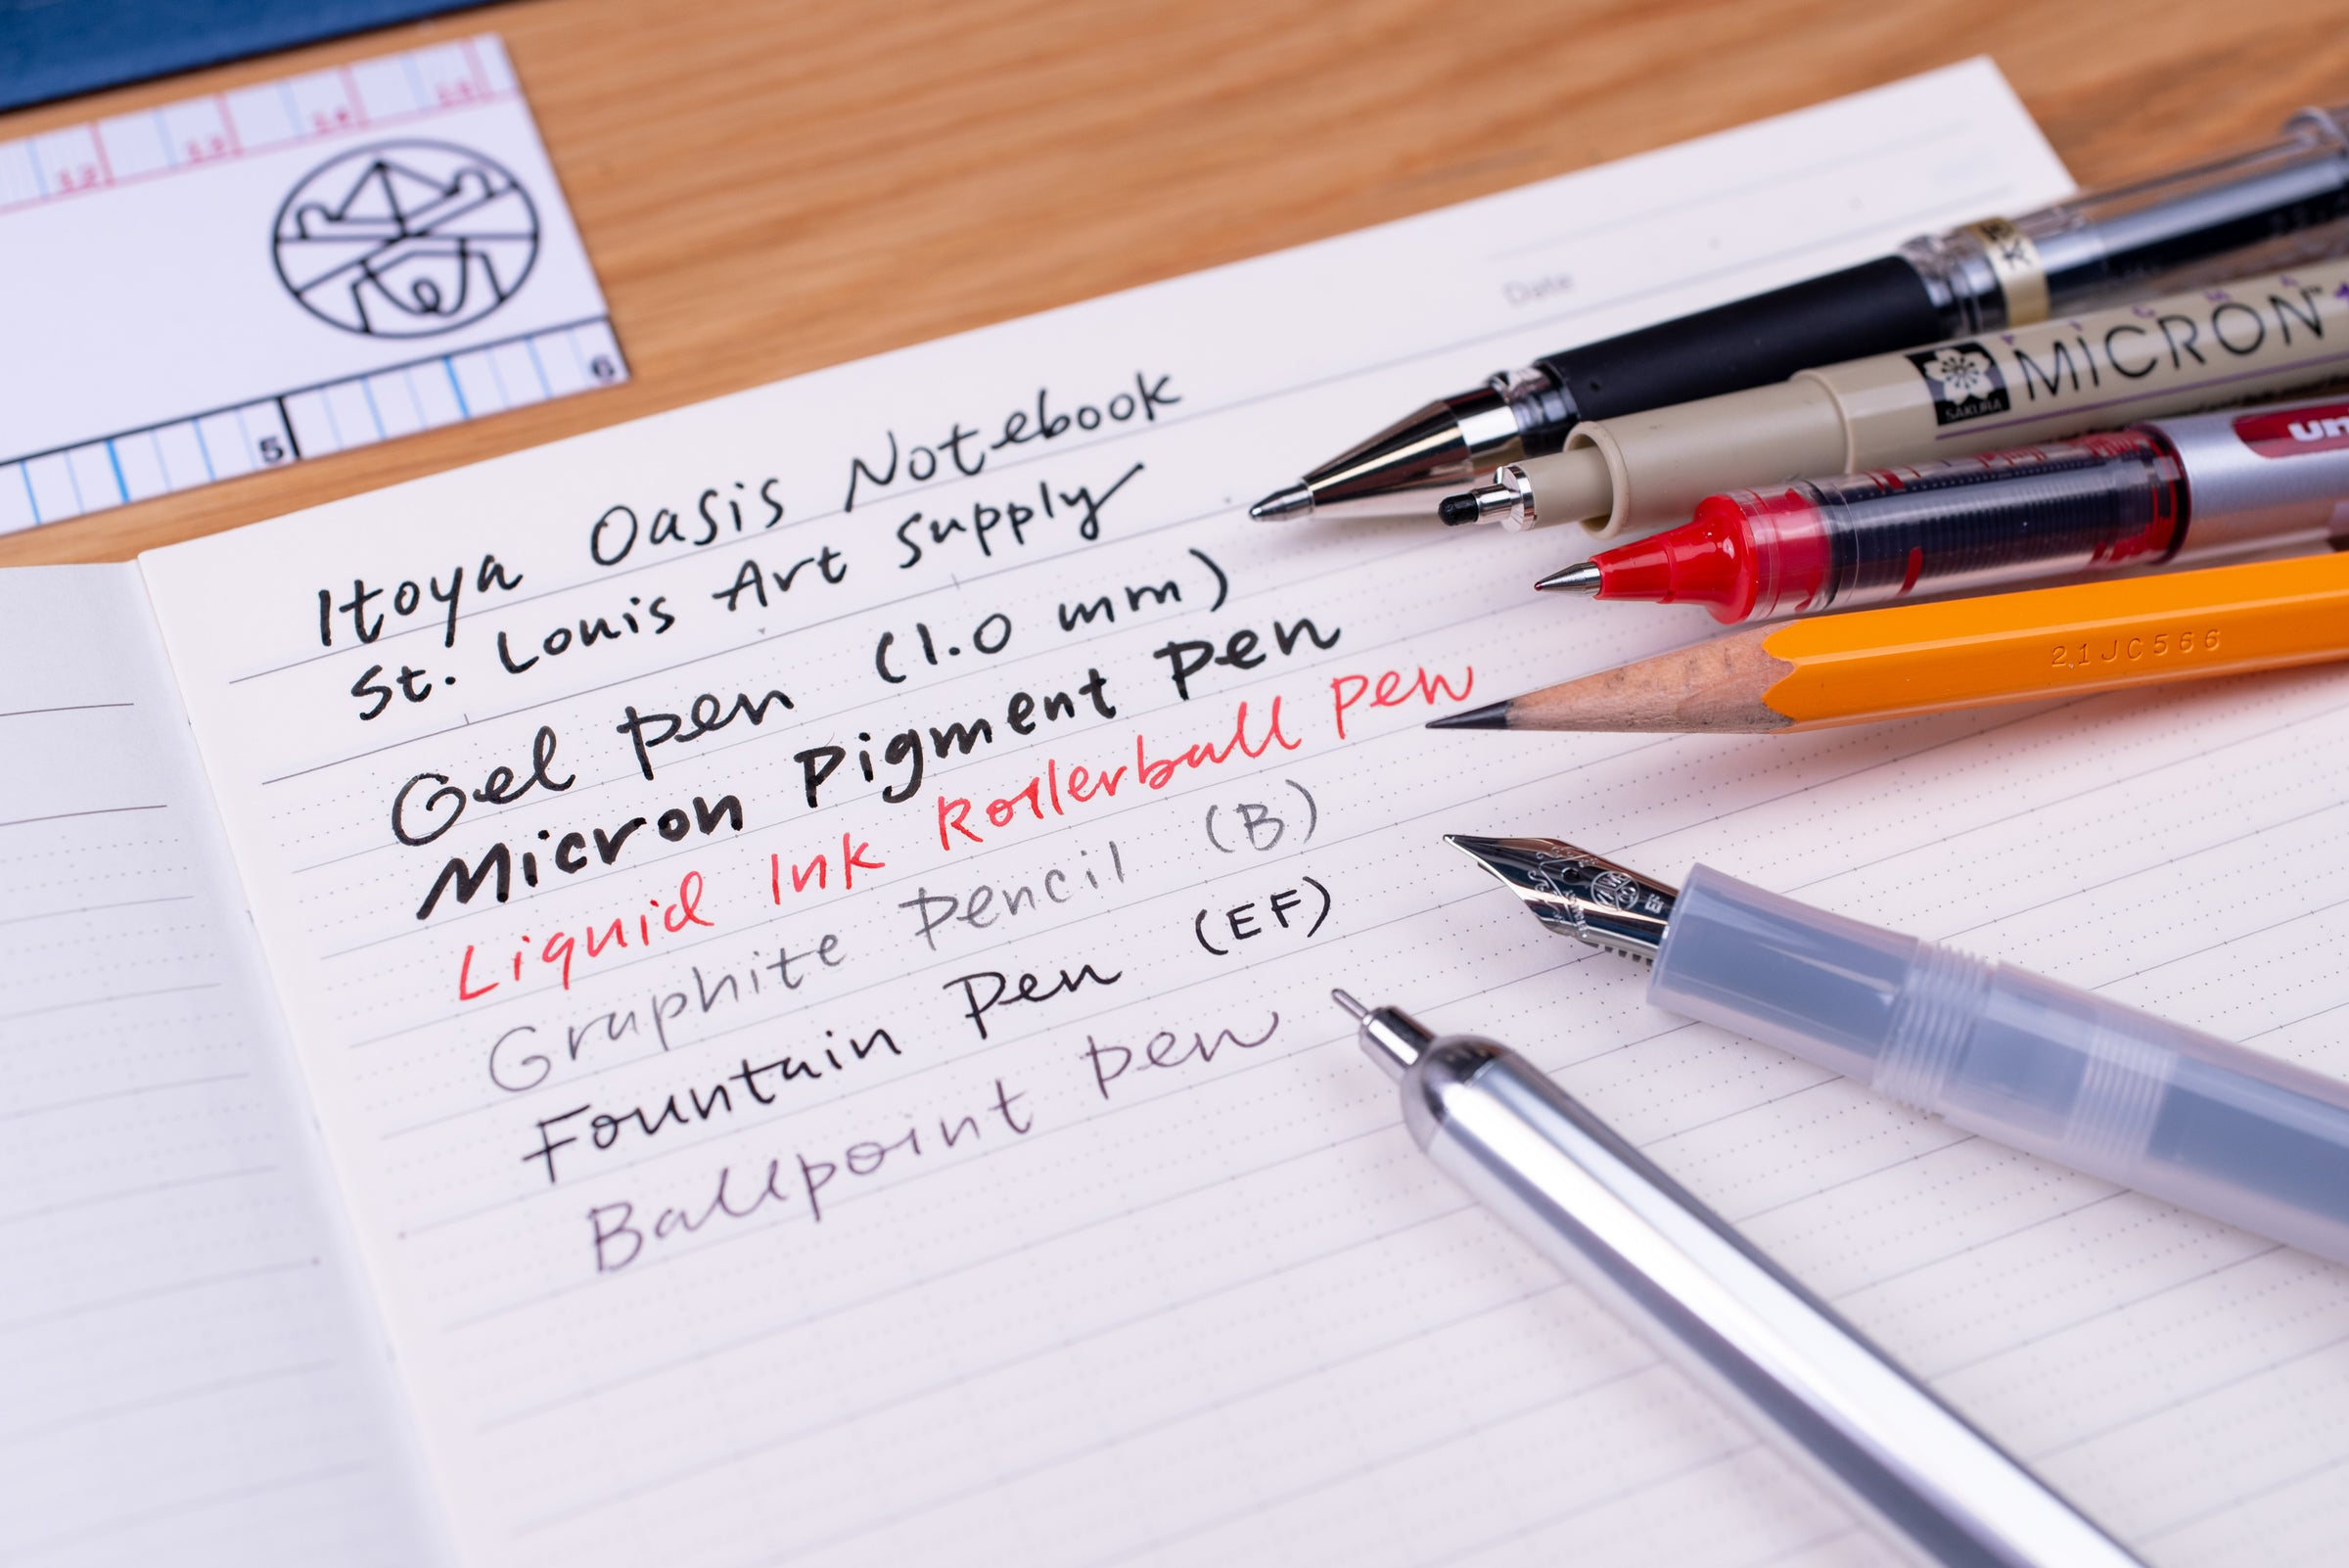 5
6
Date
Itoya Oasis Notebook
St. Louis Art Supply
Gel pen (1.0 mm)
Micron Pigment Pen
Liquid Ink Rollerball pen
Graphite Pencil (B)
Fountain Pen (EF)
Ballpoint pen
SAKURA
MICRON
un
21JC566
EF